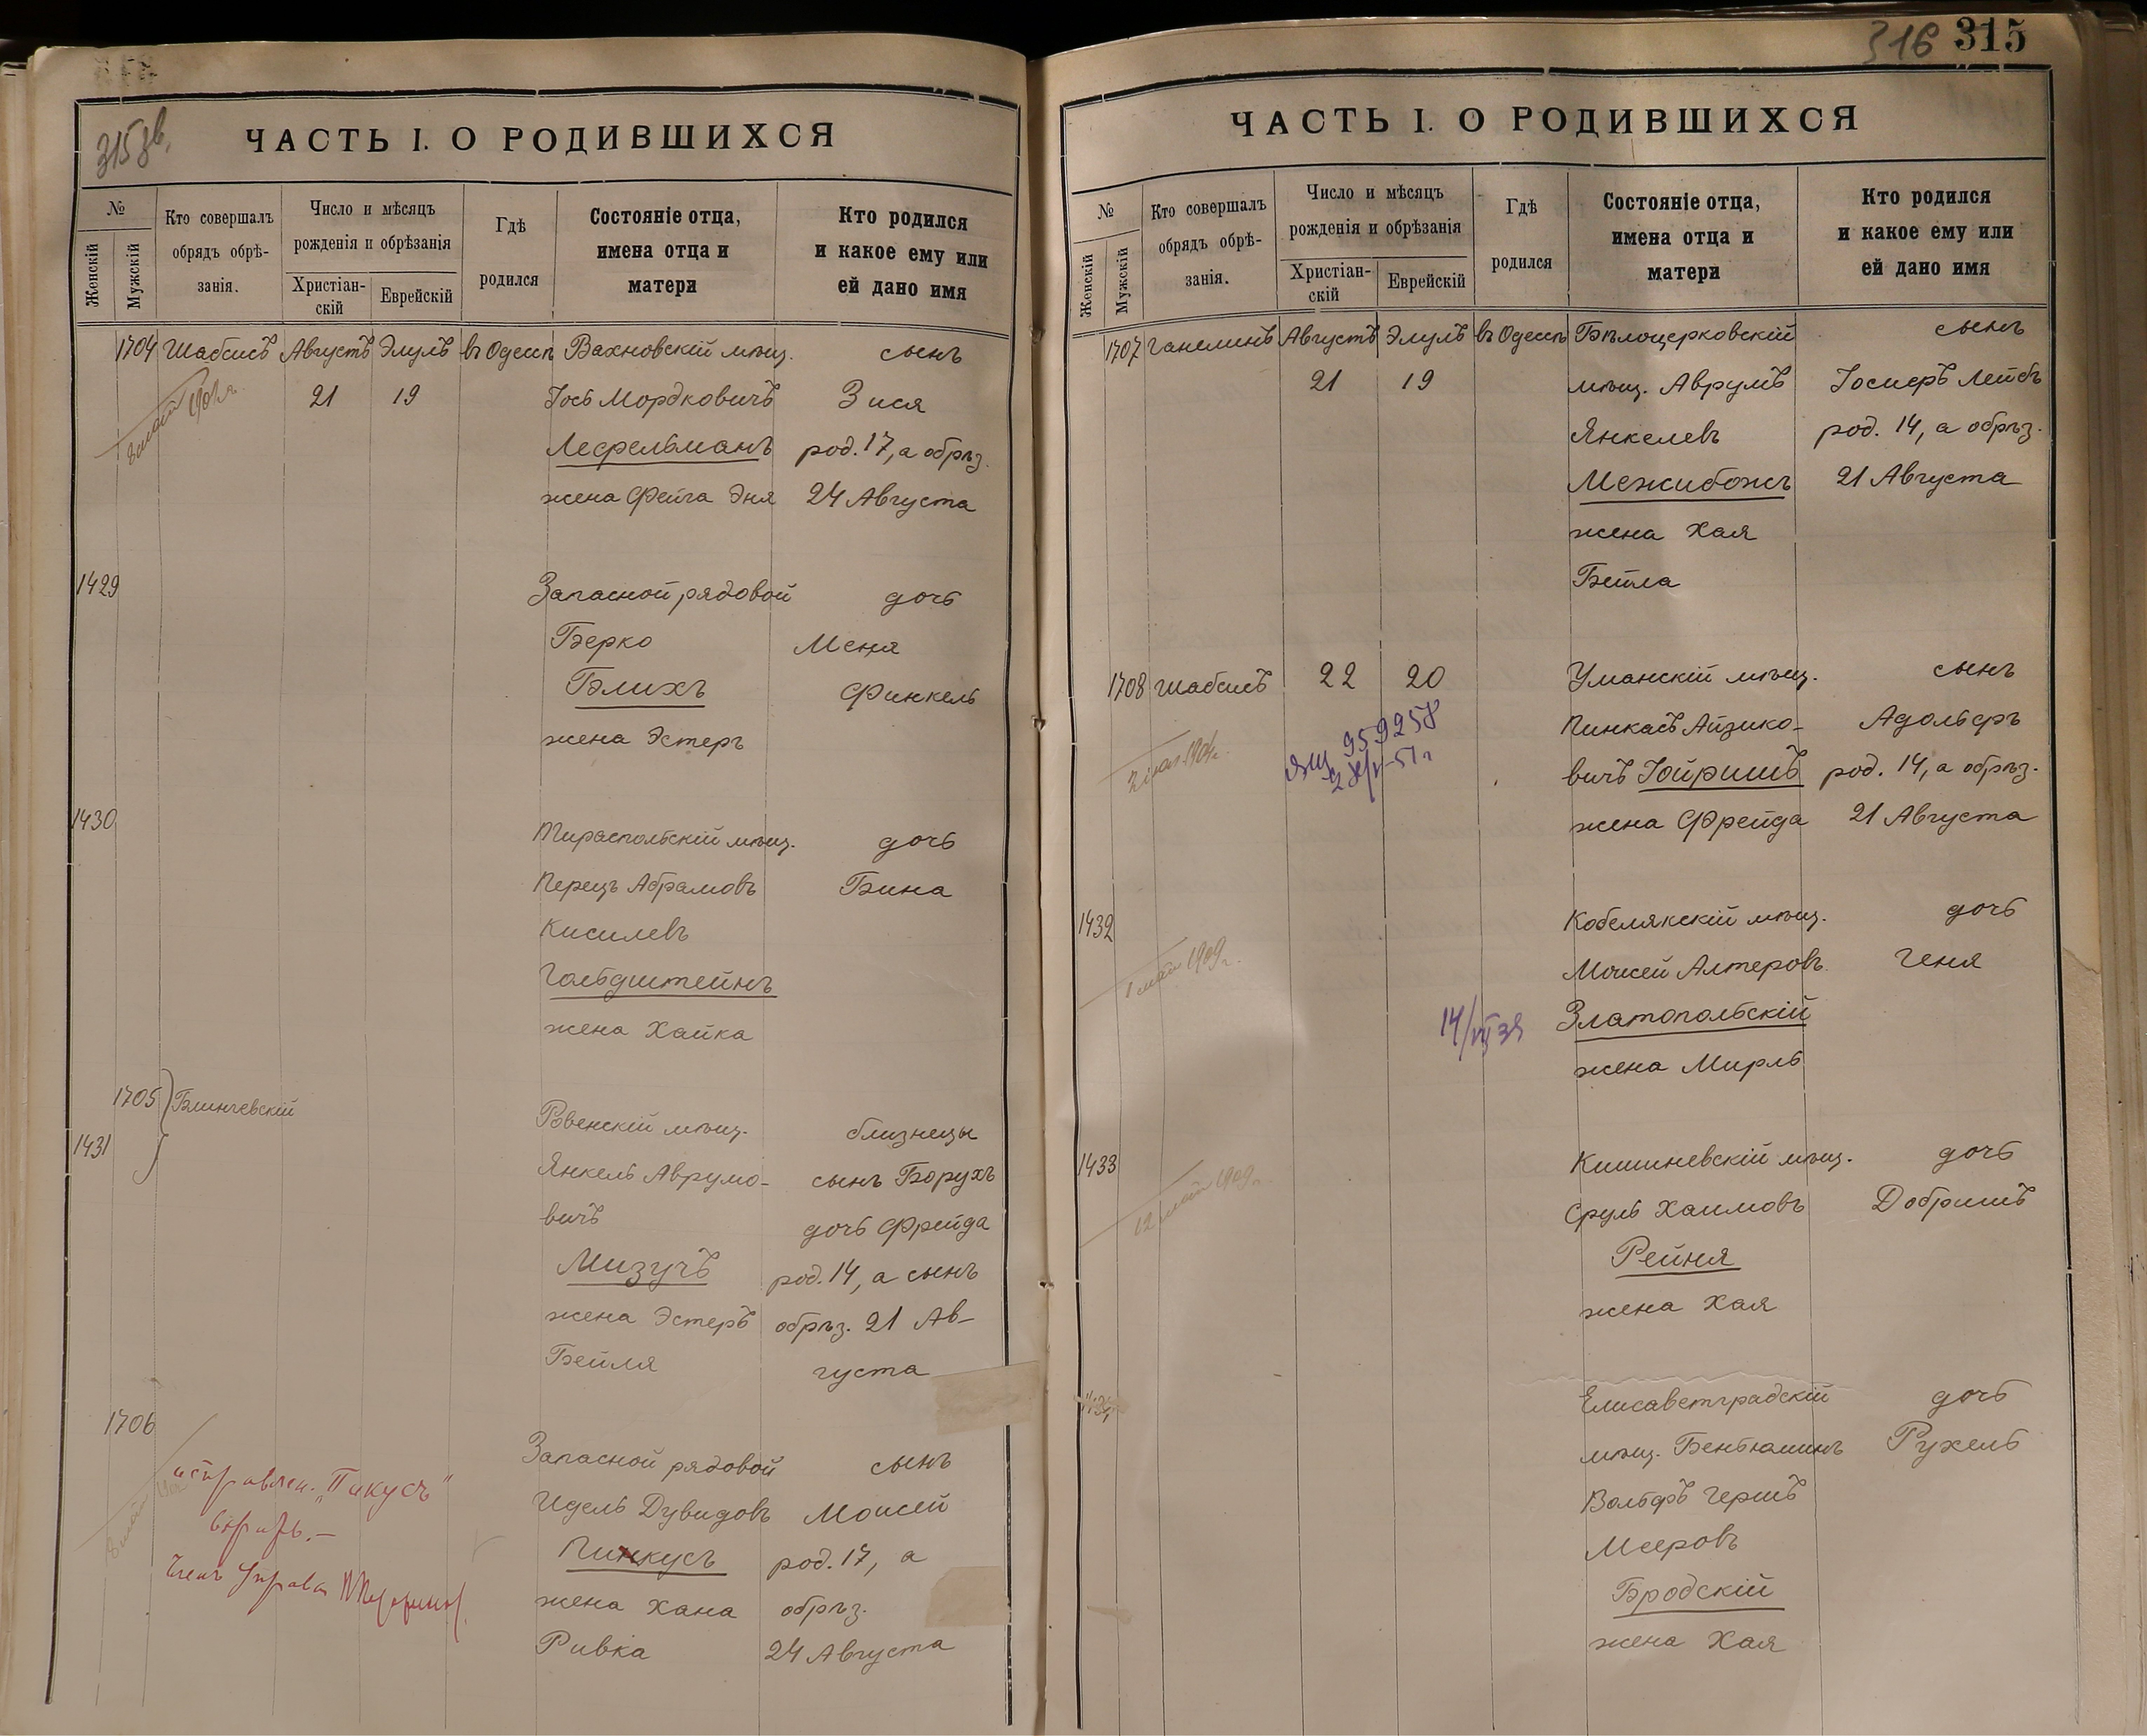 315 зв.
ЧАСТЬ I. О РОДИВШИХСЯ
№
Женскій
Мужскій
Кто совершалъ
обрядъ обрѣ-
занія.
Число и мѣсяцъ
рожденія и обрѣзанія
Христіан-
скій
Еврейскій
Гдѣ
родился
Состояніе отца,
имена отца и
матери
Кто родился
и какое ему или
ей дано имя
1704 Шабсисъ Августъ Элулъ въ Одессѣ Вахновскій мѣщ. сынъ
21 19 Іось Мордковичъ Зися
1902г.
Лефельманъ род. 17, а обрѣз.
жена Фейга Эня 24 Августа
1429 Запасной рядовой дочь
Берко Меня
Блихъ Финкель
жена Эстеръ
1430 Тираспольскій мѣщ. дочь
Перецъ Абрамовъ Бина
Кисилевъ
Гольдштейнъ
жена Хайка
1705 Блинчевскій Ровенскій мѣщ. близнецы
1431 Янкель Аврумо- сынъ Борухъ
вичъ дочь Фрейда
Мизучъ род. 14, а сынъ
жена Эстеръ обрѣз. 21 Ав-
Бейля густа
1706 Запасной рядовой сынъ
Идель Дувидовъ Моисей
Пинкусъ род. 17, а
жена Хана обрѣз.
Ривка 24 Августа
исправлен. „Пикусъ"
вѣрить.—
Членъ Управы
316 315
ЧАСТЬ I. О РОДИВШИХСЯ
№
Женскій
Мужскій
Кто совершалъ
обрядъ обрѣ-
занія.
Число и мѣсяцъ
рожденія и обрѣзанія
Христіан-
скій
Еврейскій
Гдѣ
родился
Состояніе отца,
имена отца и
матери
Кто родился
и какое ему или
ей дано имя
1707 Ганелинъ Августъ Элулъ въ Одессѣ Бѣлоцерковскій сынъ
21 19 мѣщ. Аврумъ Іосиеръ Лейбъ
Янкелевъ род. 14, а обрѣз.
Межибожъ 21 Августа
жена Хая
Бейла
1708 Шабсисъ 22 20 Уманскій мѣщ. сынъ
Пинкасъ Айзико- Адольфъ
959258
вичъ Юйришъ род. 14, а обрѣз.
жена Фрейда 21 Августа
1432 Кобелякскій мѣщ. дочь
1 май 1909г.
Моисей Алтеровъ Геня
14/VII 39 Златопольскій
жена Мирль
1433 Кишиневскій мѣщ. дочь
12 май 1909г.
Сруль Хаимовъ Добришъ
Рейня
жена Хая
1434 Елисаветградскій дочь
мѣщ. Беньюминъ Рухель
Вольфъ Гершъ
Мееровъ
Бродскій
жена Хая